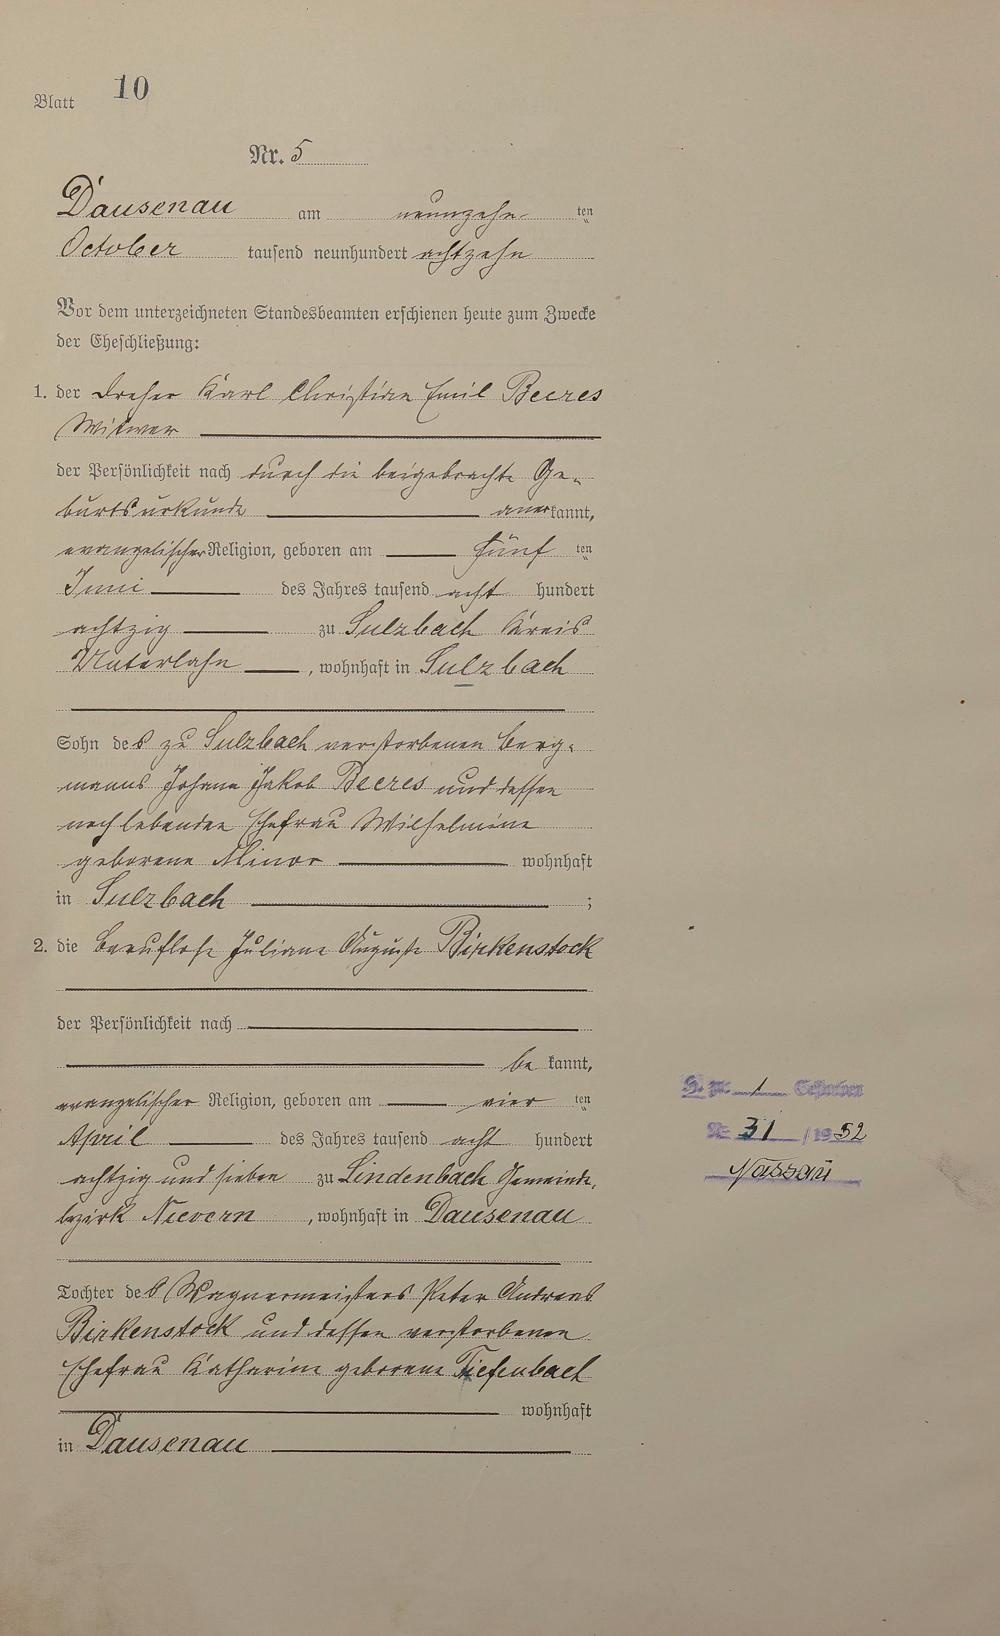 Blatt 10
Nr. 5
Dausenau am neunzehn ten
October tausend neunhundert achtzehn
Vor dem unterzeichneten Standesbeamten erschienen heute zum Zwecke
der Eheschließung:
1. der Dreher Karl Christian Emil Beeres
Witwer
der Persönlichkeit nach durch die beigebrachte Ge-
burtsurkunde anerkannt,
evangelischer Religion, geboren am fünf ten
Juni des Jahres tausend acht hundert
achtzig zu Sulzbach Kreis
Unterlahn, wohnhaft in Sulzbach
Sohn des zu Sulzbach verstorbenen Berg-
manns Johann Jakob Beeres und dessen
noch lebenden Ehefrau Wilhelmine
geborene Minor wohnhaft
in Sulzbach ;
2. die berufslose Juliane Auguste Birkenstock
der Persönlichkeit nach
be kannt,
evangelischer Religion, geboren am vier ten
April des Jahres tausend acht hundert
achtzig und sieben zu Lindenbach Gemeinde-
bezirk Nievern, wohnhaft in Dausenau
Tochter des Wagnermeisters Peter Andreas
Birkenstock und dessen verstorbenen
Ehefrau Katharine geborene Tiefenbach
wohnhaft
in Dausenau
1 Gestorben
Nr. 31 / 1952
Nassau